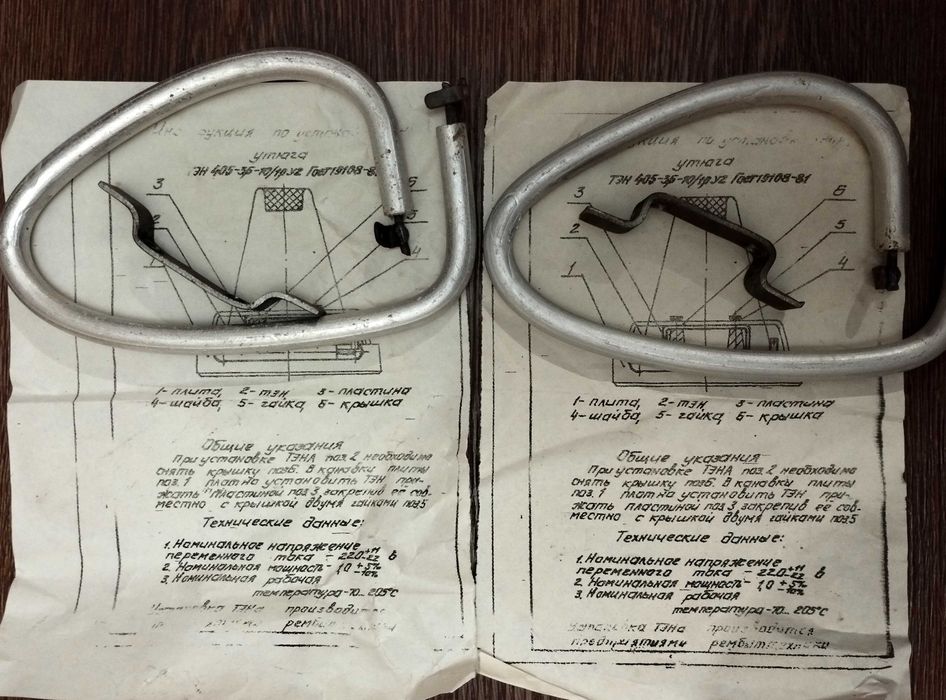 по
утюга
ТЭН 405-3Б-10/1р.У2 Гост 19108-8
3
2
5
4
1- плита, 2- тэн 3- пластина
4- шайба, 5- гайка, 6- крышка
Общие указания
При установке ТЭНА поз.2 необходимо
снять крышку поз6. В канавки плиты
поз.1 платно установить ТЭН при-
жать пластиной поз 3 закрепив её сов-
местно с крышкой двумя гайками поз5
Технические данные:
1. Номинальное напряжение
переменного тока - 220 +11 -22 в
2. Номинальная мощность - 1,0 +5% -10%
3. Номинальная рабочая
температура -70... 205°С
Установка ТЭНа производится
по установ
утюга
ТЭН 405-3Б-10/1р.У2 Гост 19108-81
3
2
1
6
5
4
1- плита, 2- тэн, 3- пластина
4- шайба, 5- гайка, 6- крышка
Общие указания
При установке ТЭНА поз.2 необходимо
снять крышку поз6. В канавки плиты
поз.1 платно установить ТЭН при-
жать пластиной поз 3 закрепив её сов-
местно с крышкой двумя гайками поз5
Технические данные:
1. Номинальное напряжение
переменного тока - 220 +11 -22 в
2. Номинальная мощность - 1,0 +5% -10%
3. Номинальная рабочая
температура -70... 205°С
Установка ТЭНа производится
предприятиями рембыттехники